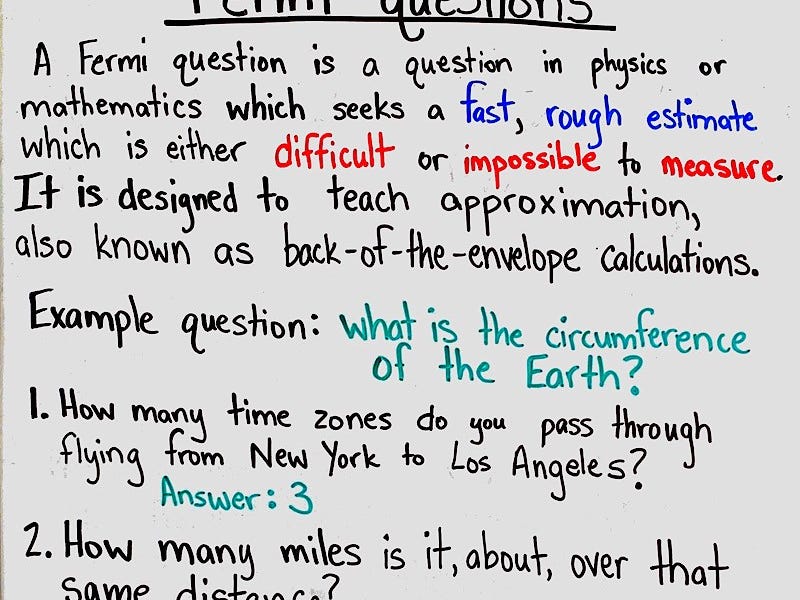 Fermi Questions
A Fermi question is a question in physics or
mathematics which seeks a fast, rough estimate
which is either difficult or impossible to measure.
It is designed to teach approximation,
also known as back-of-the-envelope calculations.
Example question: what is the circumference
of the Earth?
1. How many time zones do you pass through
flying from New York to Los Angeles?
Answer: 3
2. How many miles is it, about, over that
same distance?